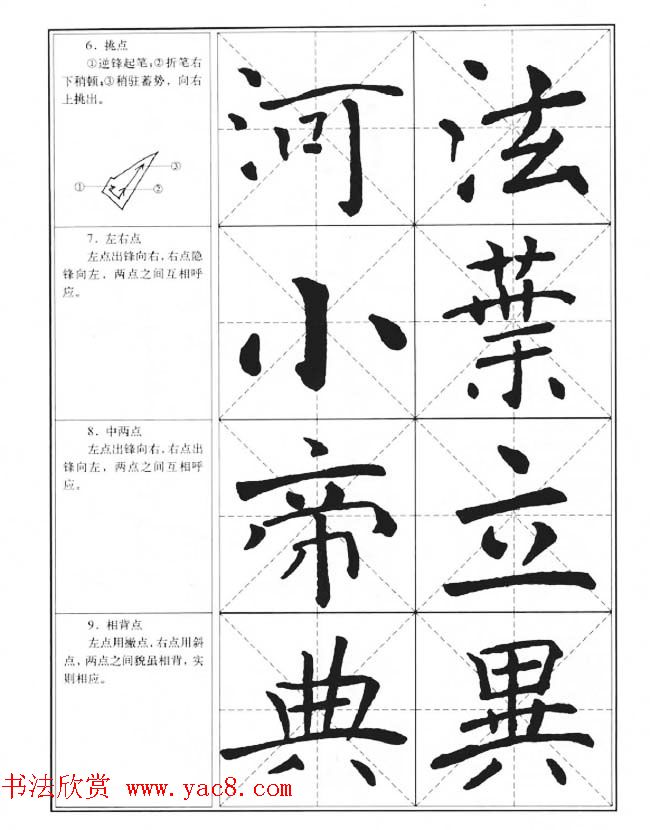 6. 挑点
①逆锋起笔;②折笔右
下稍顿;③稍驻蓄势,向右
上挑出。
③
①
②
河 泫
7. 左右点
左点出锋向右,右点隐
锋向左,两点之间互相呼
应。
小 葉
8. 中两点
左点出锋向右,右点出
锋向左,两点之间互相呼
应。
帝 立
9. 相背点
左点用撇点,右点用斜
点,两点之间貌虽相背,实
则相应。
典 異
书法欣赏 www.yac8.com